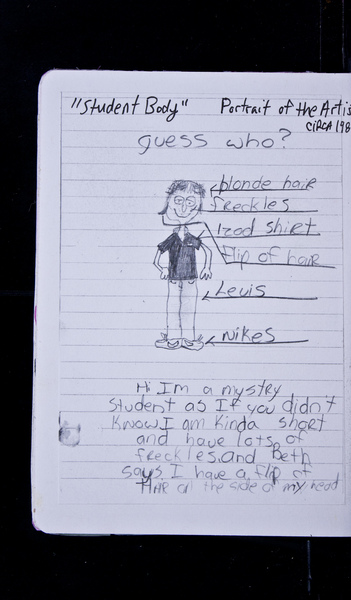 "Student Body" Portrait of the Artis
CIRCA 198
guess who?
blonde hair
freckles
Izod shirt
flip of hair
Levis
Nikes
Hi Im a mystry
Student as If you didn't
Know I am Kinda short
and have lots of
freckles. and Beth
says I have a flip of
HAIR on the side of my head